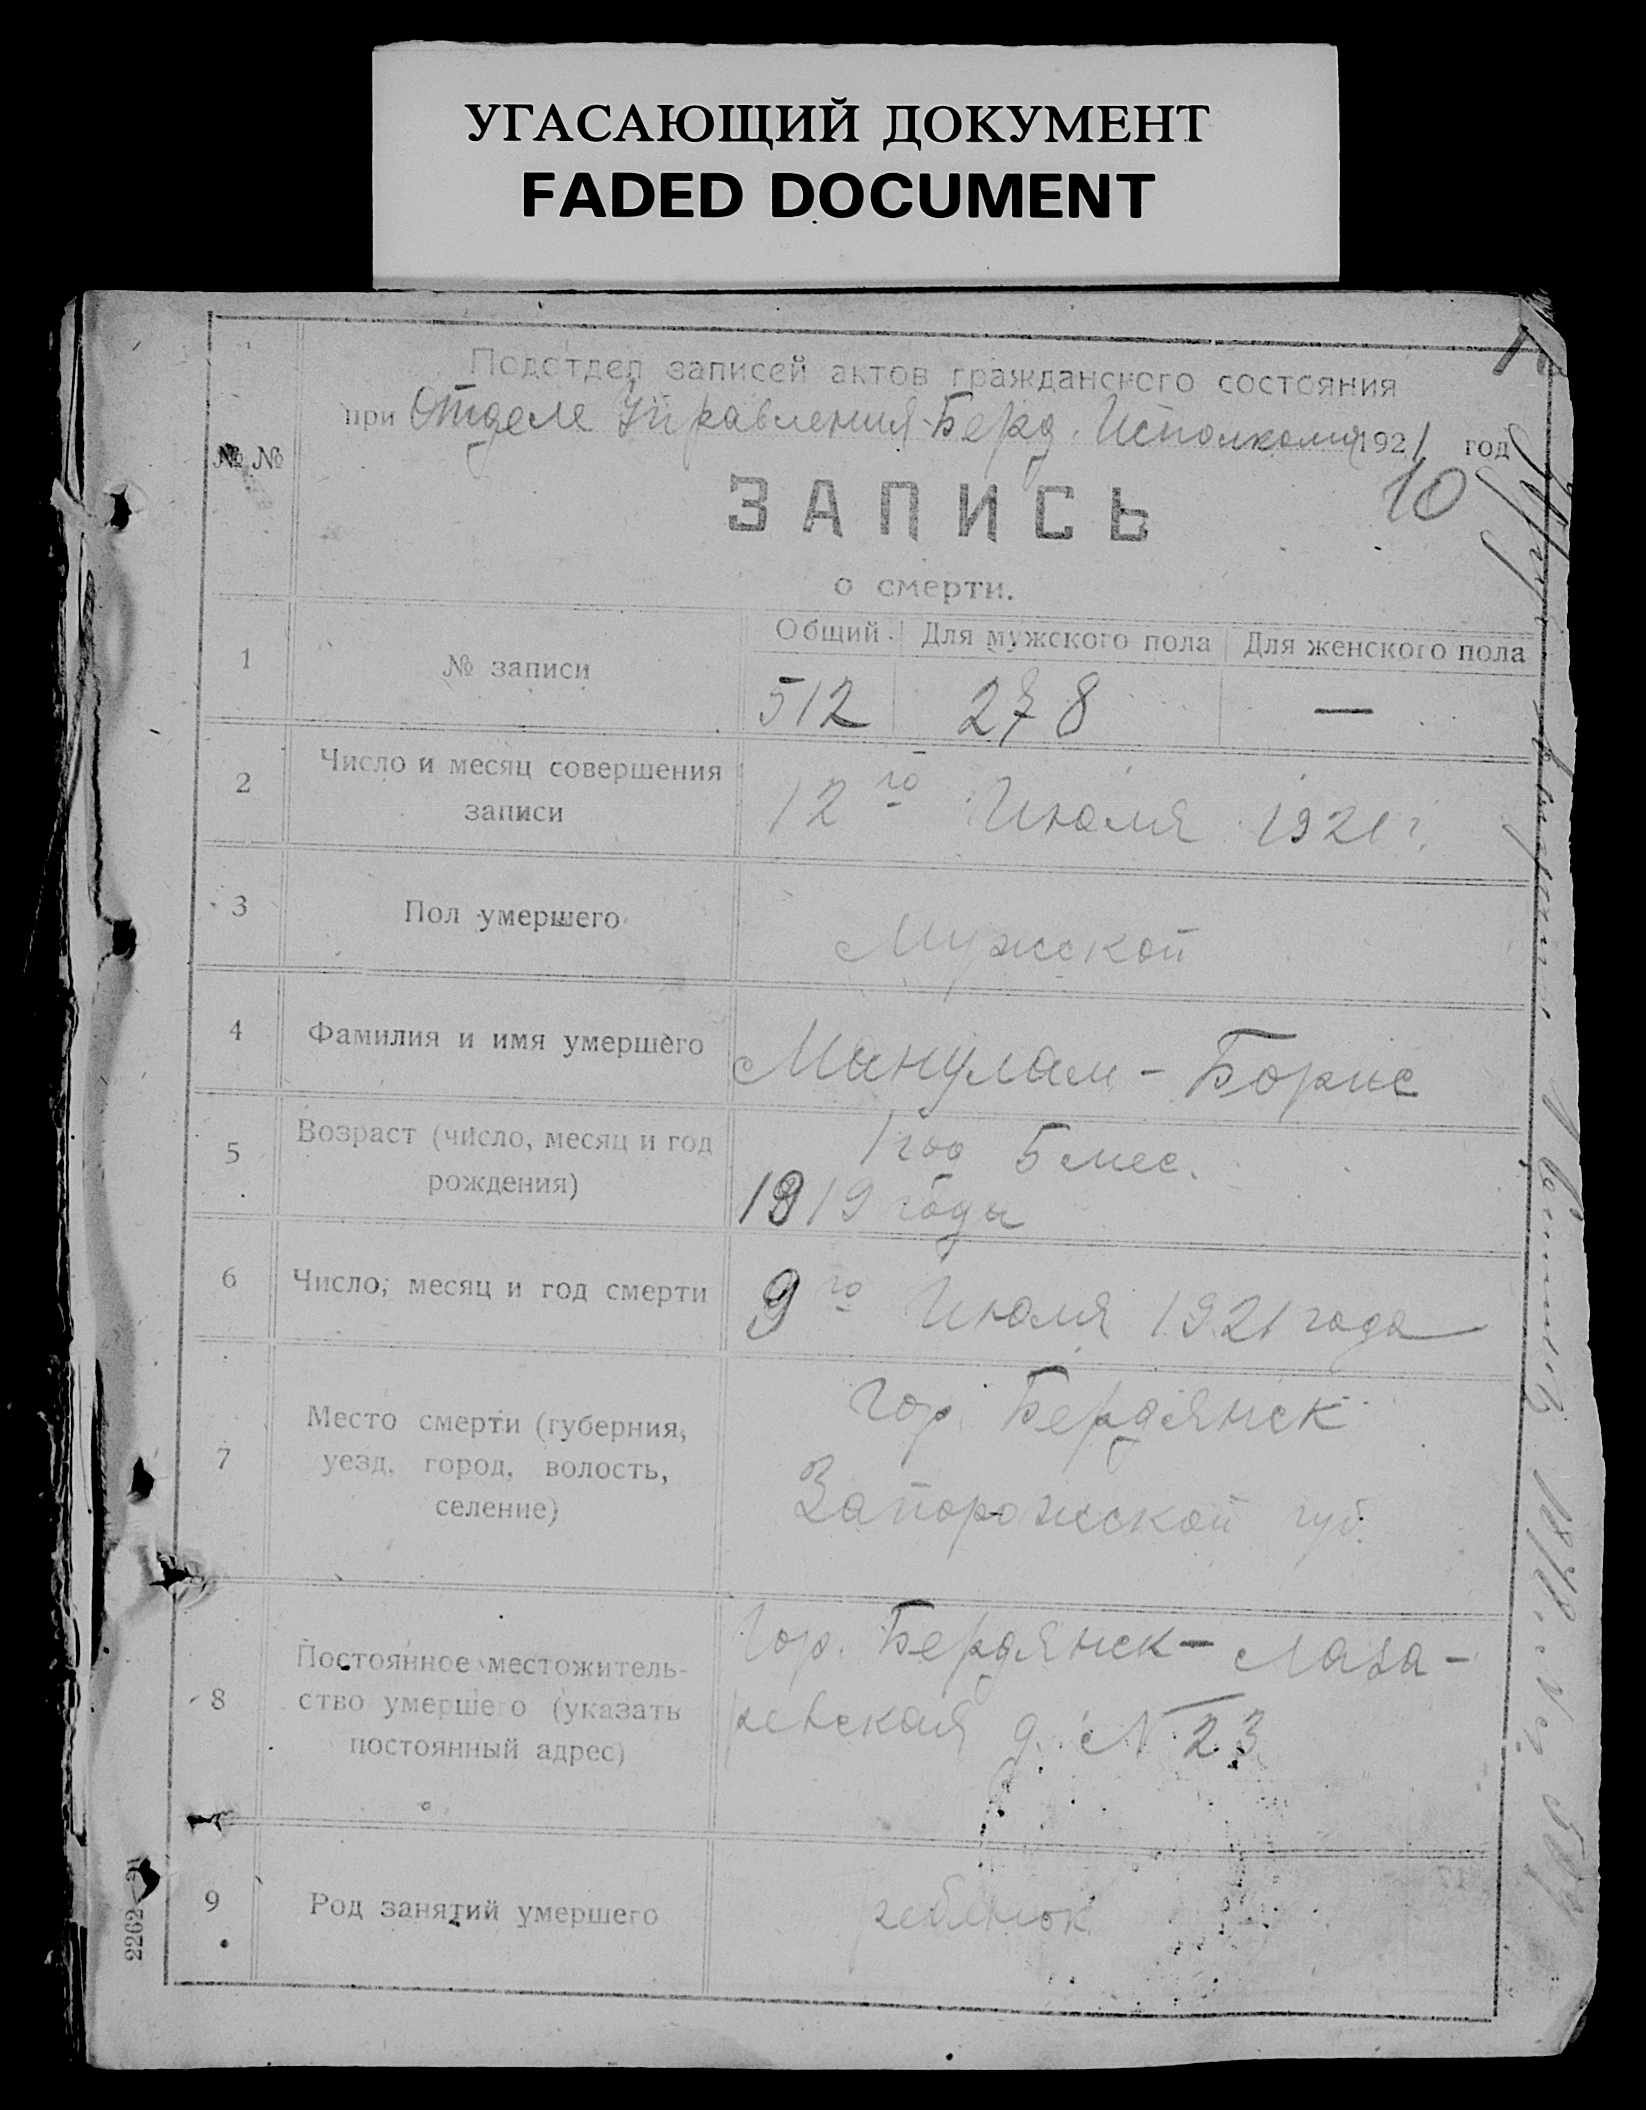 УГАСАЮЩИЙ ДОКУМЕНТ
FADED DOCUMENT
Подотдел записей актов гражданского состояния
при Отделе Управления Берд. Исполкома 1921 год
№ №
10
ЗАПИСЬ
о смерти.
Общий Для мужского пола Для женского пола
1 № записи
512 278 —
2 Число и месяц совершения
записи
12го Июля 1921 г.
3 Пол умершего
Мужской
4 Фамилия и имя умершего
Манулам - Борис
5 Возраст (число, месяц и год
рождения)
1 год 5 мес.
1919 года
6 Число, месяц и год смерти
9го Июля 1921 года
7 Место смерти (губерния,
уезд, город, волость,
селение)
гор. Бердянск
Запорожской губ.
8 Постоянное местожитель-
ство умершего (указать
постоянный адрес)
Гор. Бердянск - Лаза-
ревская д. № 23
9 Род занятий умершего
ребенок
2262—21